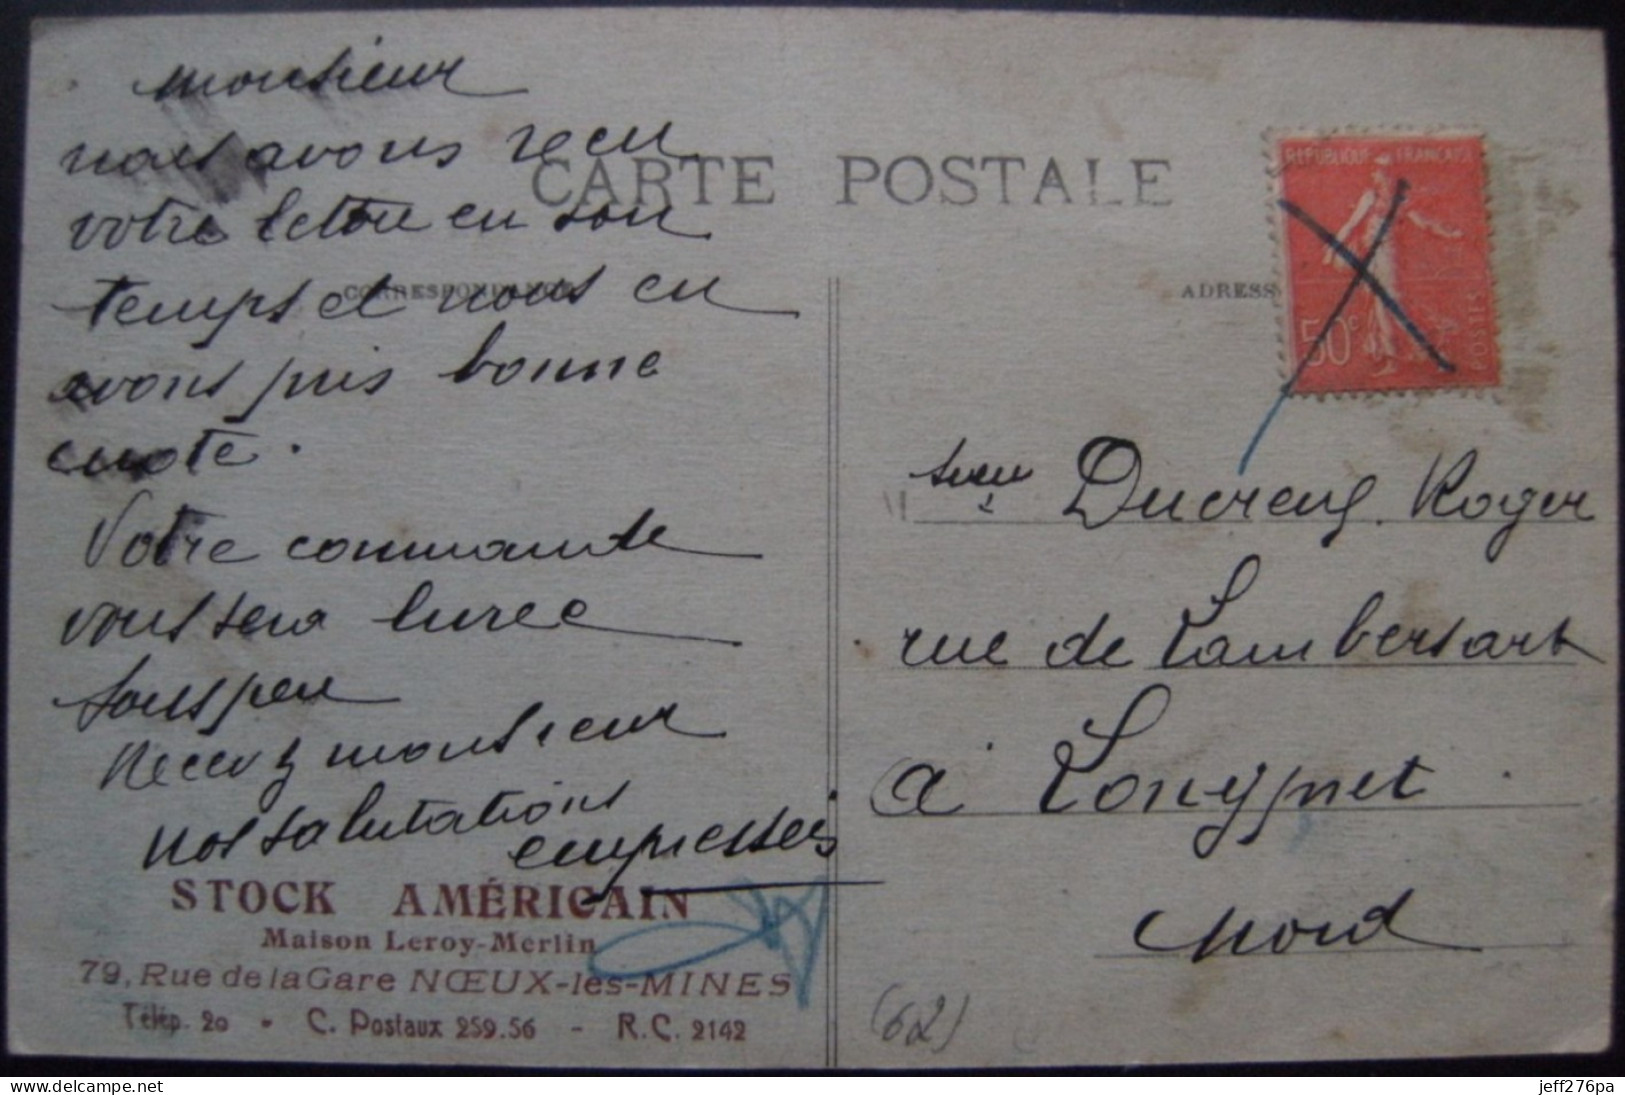 CARTE POSTALE
CORRESPONDANCE
Monsieur
nous avons recu
votre lettre en son
temps et nous en
avons pris bonne
note.
Votre commande
vous sera livrée
sous peu
Recevez monsieur
nos salutations
empressées
STOCK AMÉRICAIN
Maison Leroy-Merlin
79, Rue de la Gare NŒUX-les-MINES
Télép. 20 - C. Postaux 259.56 - R.C. 2142
REPUBLIQUE FRANCAISE
50c
POSTES
ADRESS
Ducreux Roger
rue de Lambersart
à Lompret
Nord
(62)
delcampe.net
jeff276pa